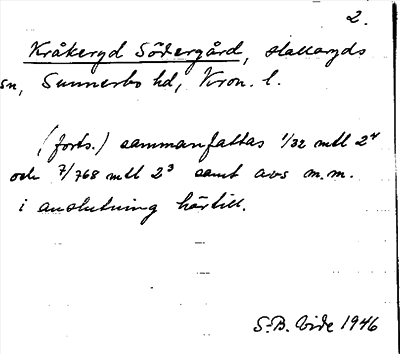 2.
Kråkeryd Södergård, Hallaryds
sn, Sunnerbo hd, Kron. l.
(forts.) sammanfattas 1/32 mtl 2⁴
och 7/768 mtl 2³ samt avs m.m.
i anslutning härtill.
S-B. Vide 1946